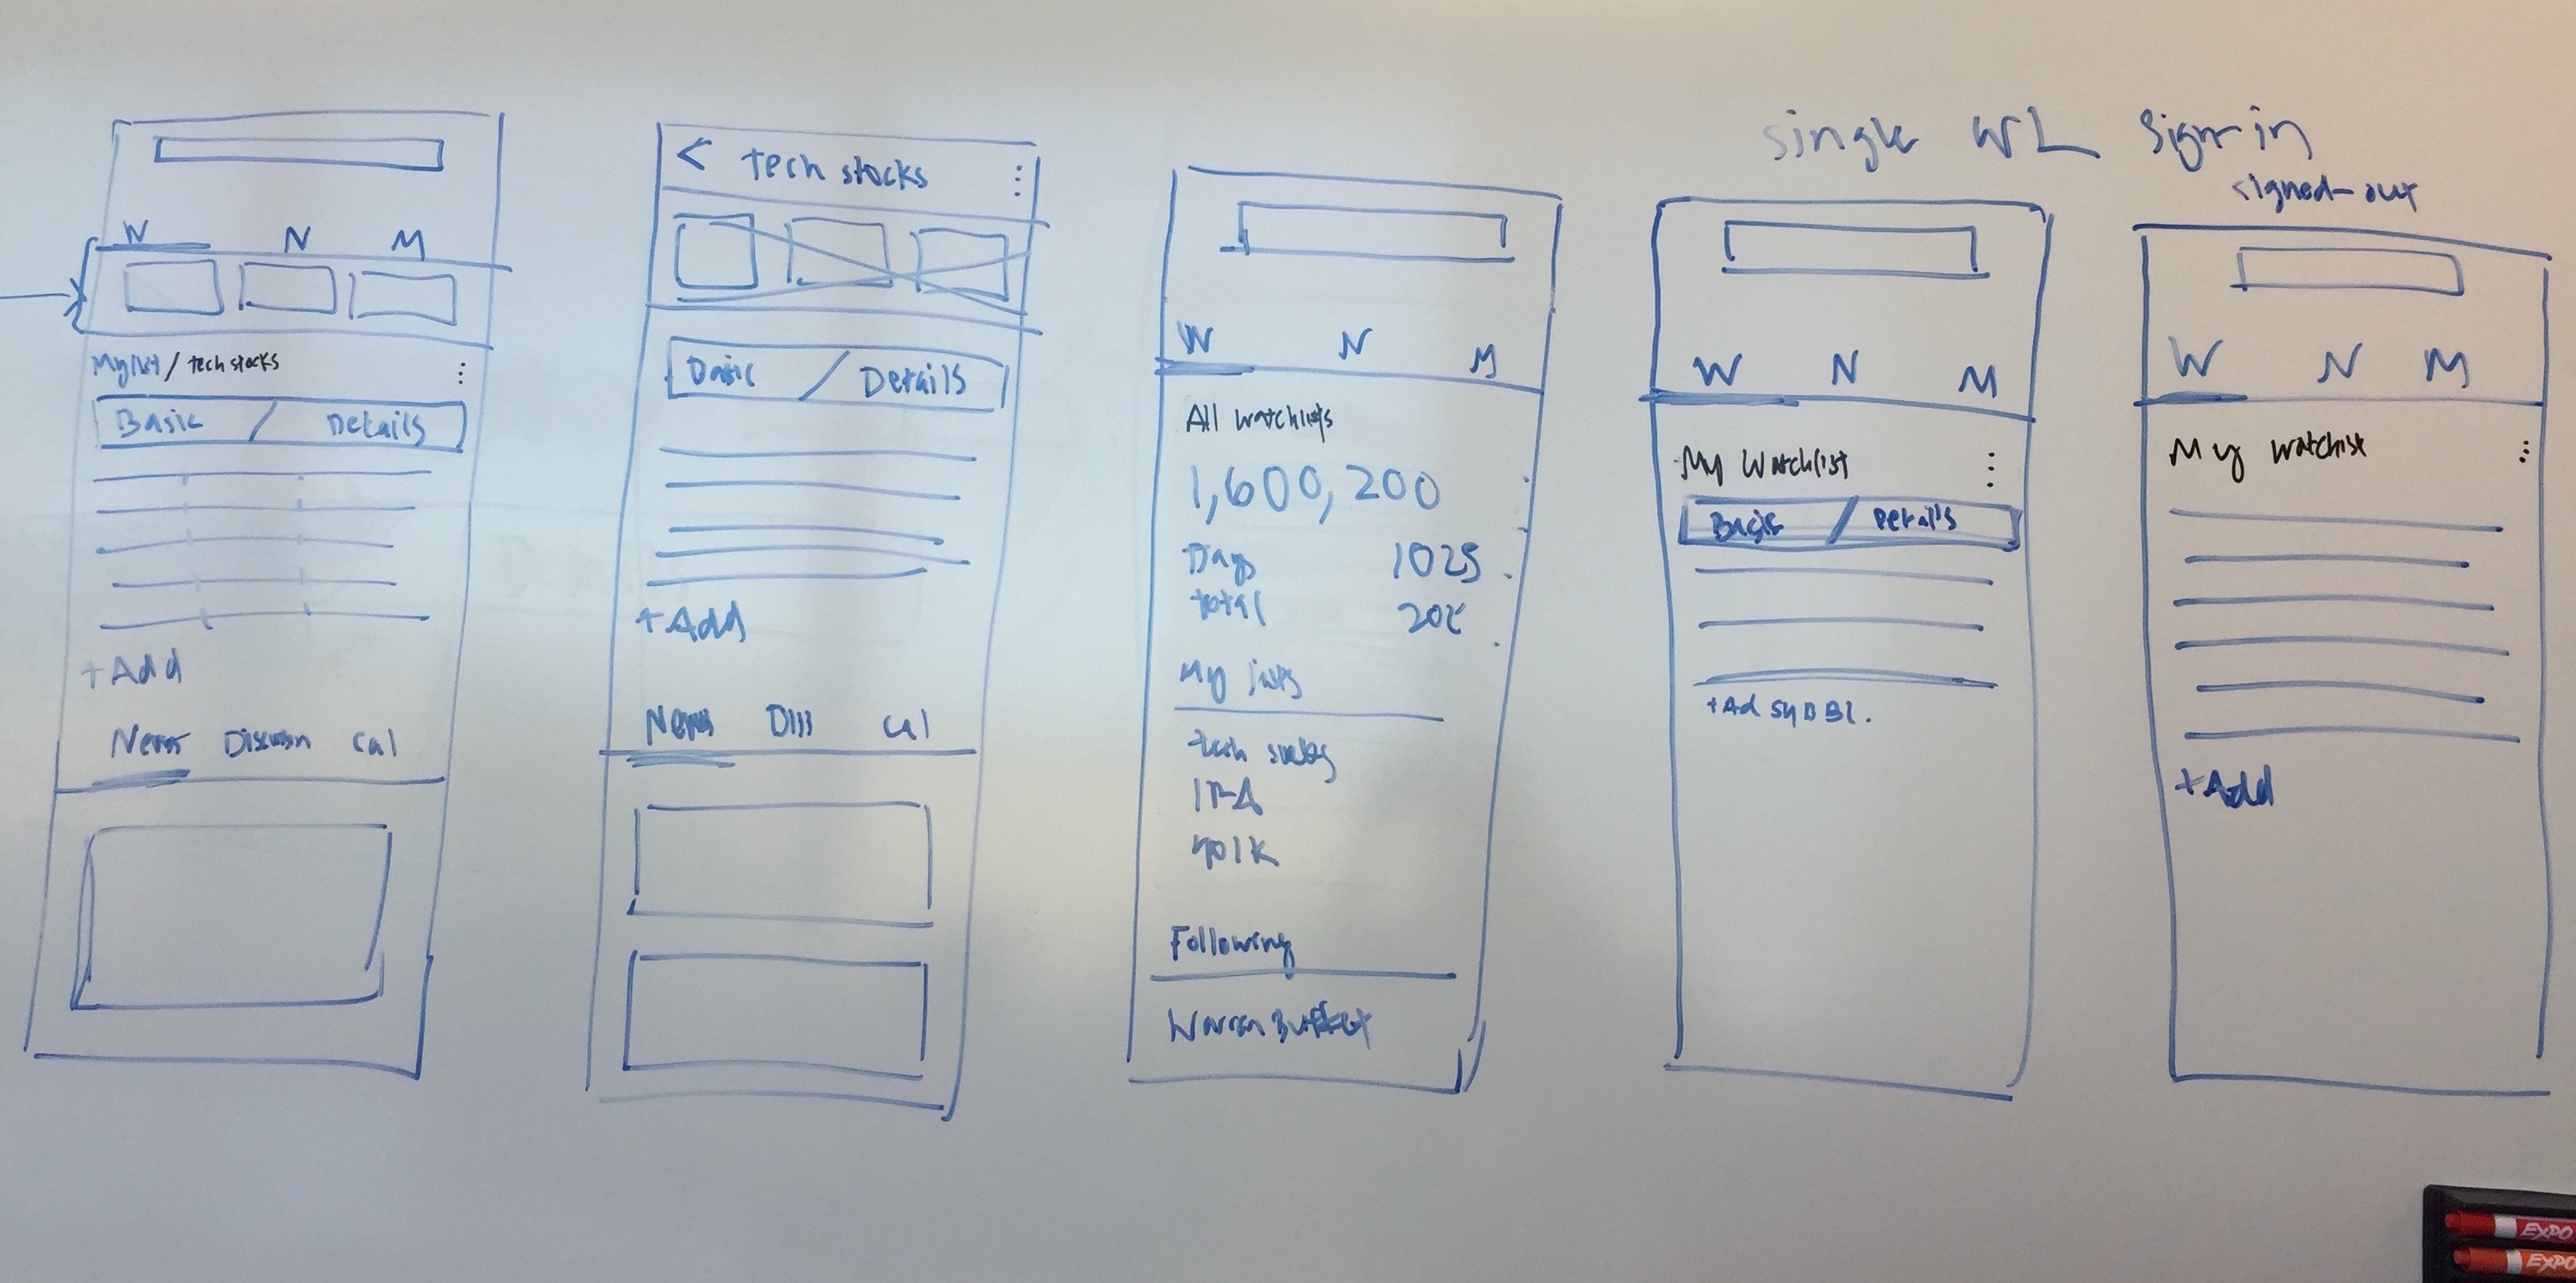 W N M
Mylist / tech stocks
Basic / Details
+Add
News Discussion Cal
< tech stocks
Basic / Details
+Add
News Diss Cal
W N M
All watchlists
1,600,200
Days 1025
total 202
My lists
tech stocks
IRA
401K
Following
Warren Buffet
single WL sign-in
W N M
My Watchlist
Basic / Details
+Ad SYMBL.
signed-out
W N M
My watchlist
+Add
EXPO
EXPO